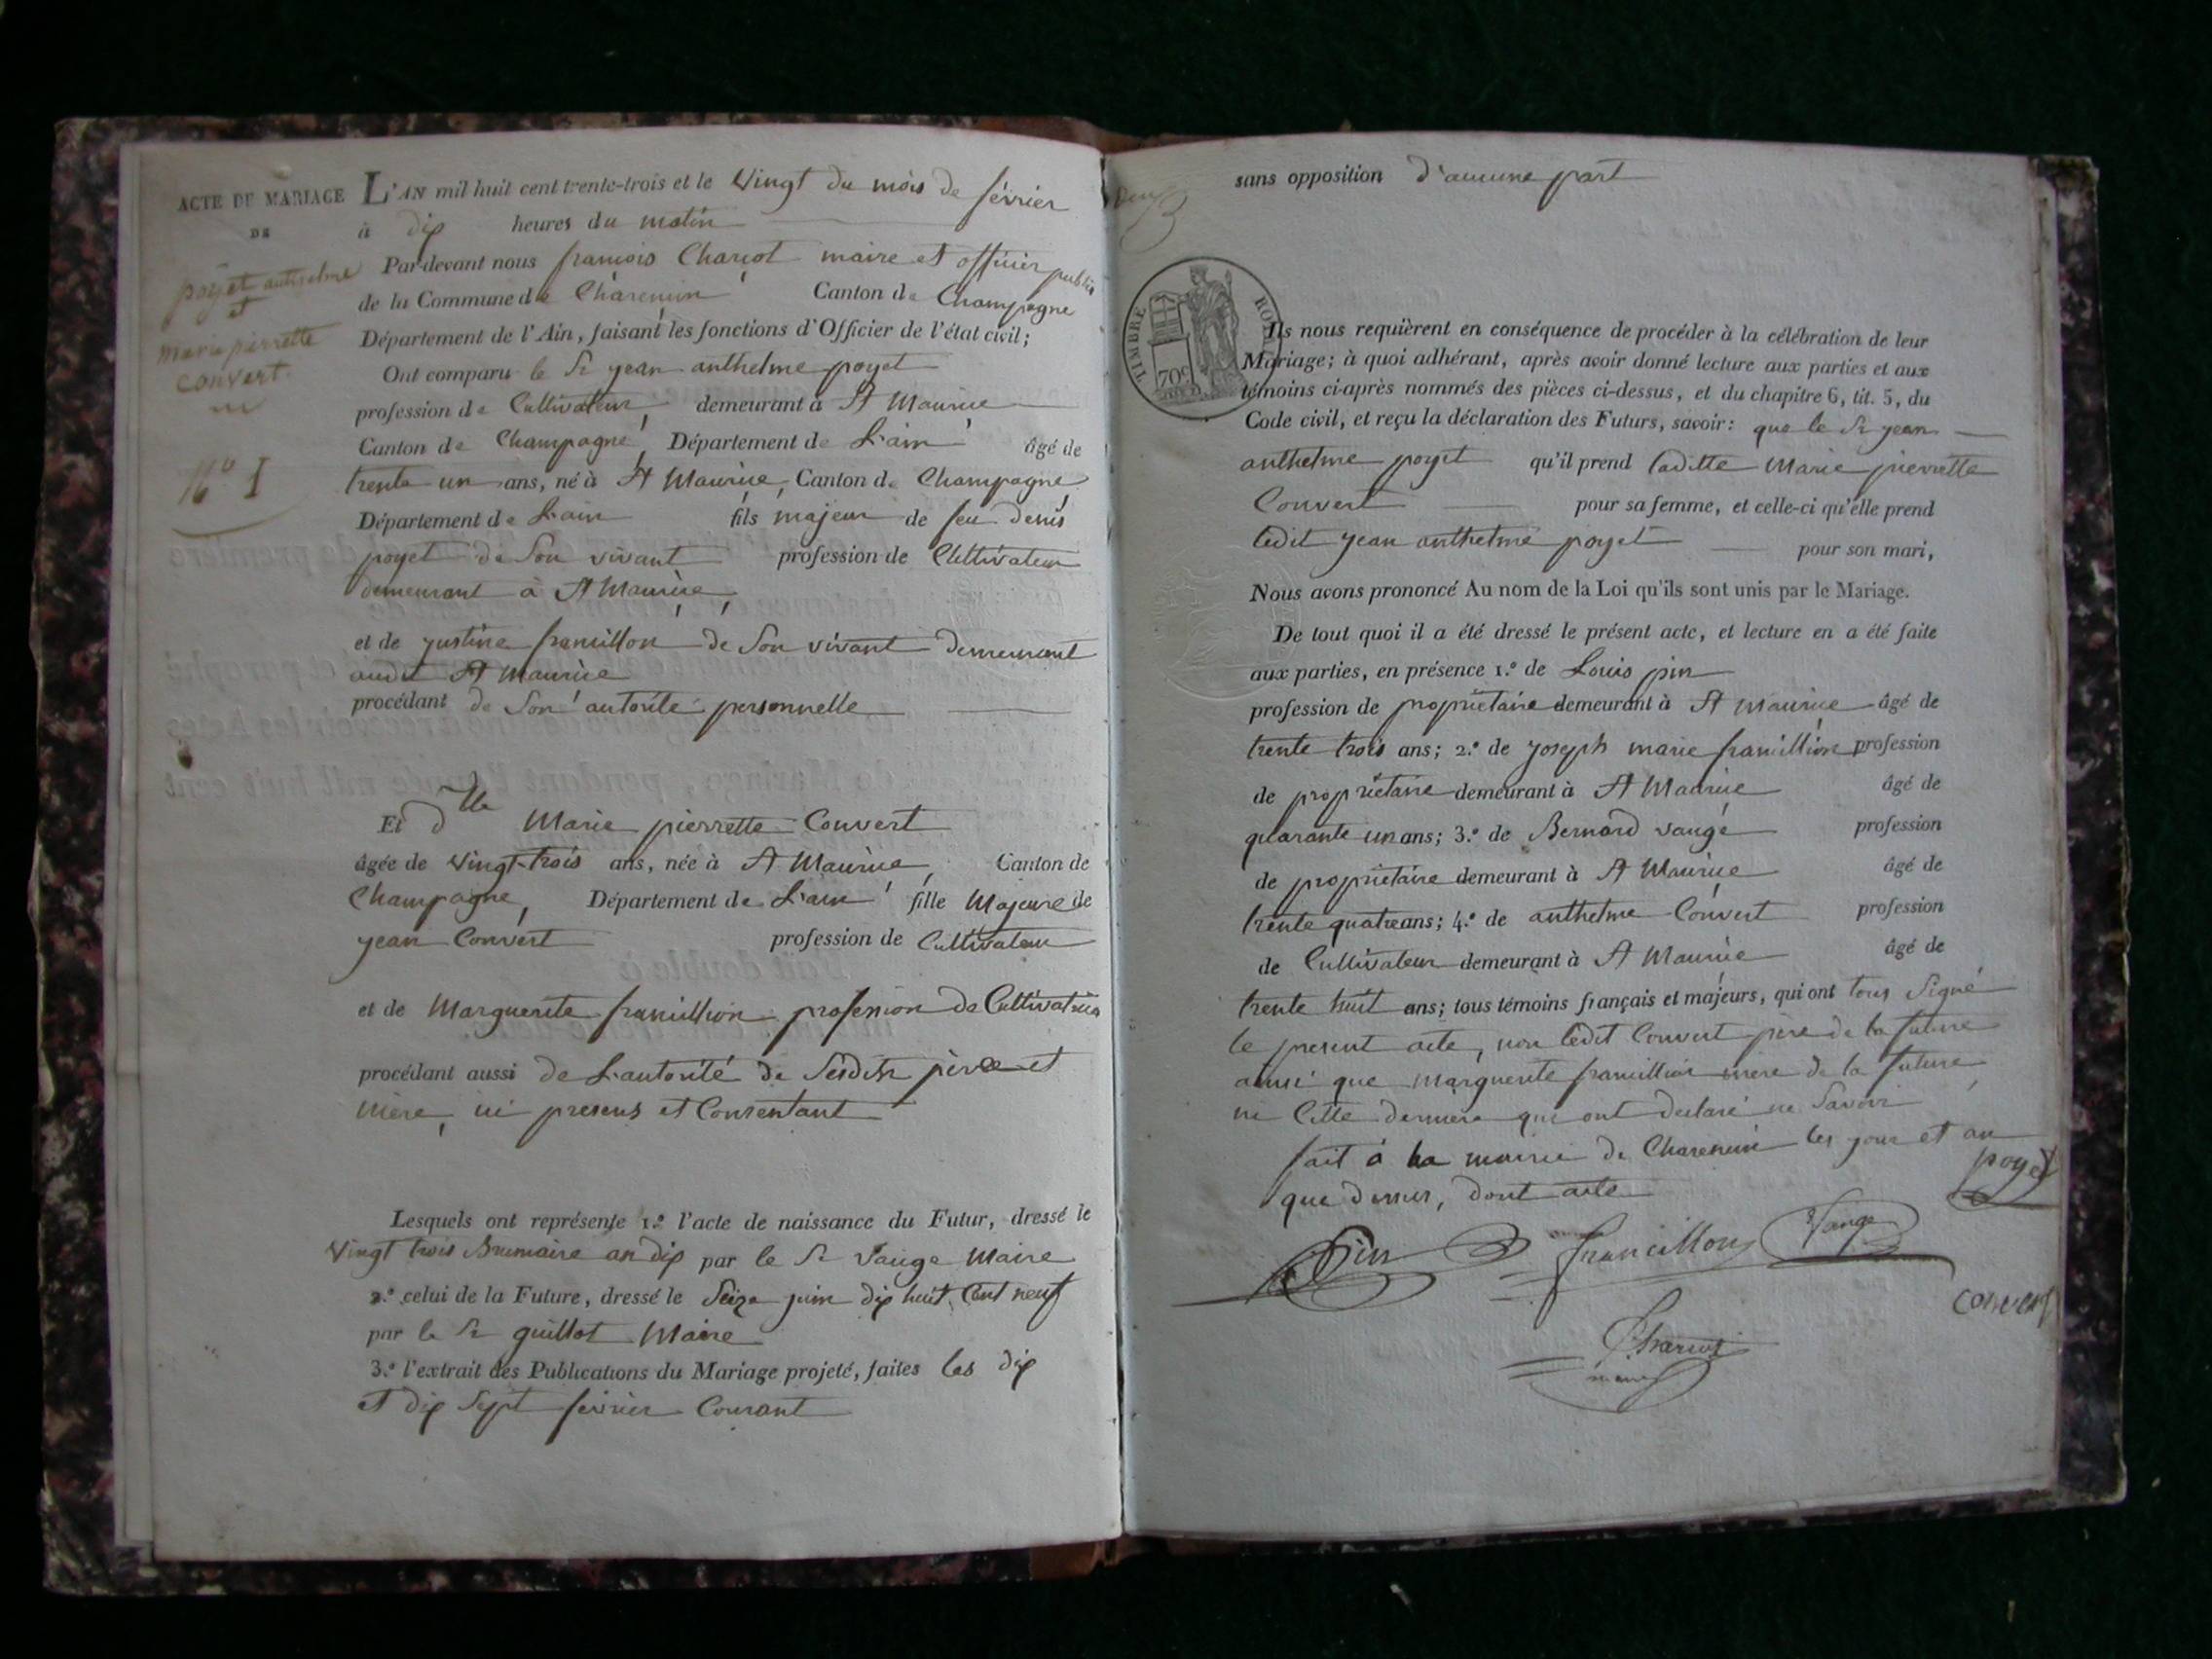 ACTE DE MARIAGE
DE
poyet anthelme
et
marie pierrette
convert
N.º 1
L'AN mil huit cent trente-trois et le Vingt du mois de février
à dix heures du matin
Par-devant nous françois Charcot maire et officier public
de la Commune de Charencin Canton de Champagne
Département de l'Ain, faisant les fonctions d'Officier de l'état civil;
Ont comparu le Sr jean anthelme poyet
profession de Cultivateur, demeurant à St Maurice
Canton de Champagne, Département de L'ain âgé de
trente un ans, né à St Maurice, Canton de Champagne
Département de L'ain fils majeur de feu denis
poyet de Son vivant profession de Cultivateur
demeurant à St Maurice,
et de justine francillon de Son vivant demeurant
audit St Maurice
procédant de Son autorité personnelle
Et dlle Marie pierrette Convert
âgée de Vingt-trois ans, née à St Maurice, Canton de
Champagne, Département de L'ain fille Majeure de
jean Convert profession de Cultivateur
et de Marguerite francillion profession de Cultivatrice
procédant aussi de L'autorité de Sesdits père et
Mère, ici presens et Consentant
Lesquels ont représenté 1.º l'acte de naissance du Futur, dressé le
Vingt trois Brumaire an dix par le Sr Vauge Maire
2.º celui de la Future, dressé le Seize juin dix huit Cent neuf
par le Sr guillot Maire
3.º l'extrait des Publications du Mariage projeté, faites les dix
et dix Sept février Courant
sans opposition d'aucune part
TIMBRE ROYAL
70c
Ils nous requièrent en conséquence de procéder à la célébration de leur
Mariage; à quoi adhérant, après avoir donné lecture aux parties et aux
témoins ci-après nommés des pièces ci-dessus, et du chapitre 6, tit. 5, du
Code civil, et reçu la déclaration des Futurs, savoir: que le Sr jean
anthelme poyet qu'il prend laditte Marie pierrette
Convert pour sa femme, et celle-ci qu'elle prend
ledit jean anthelme poyet pour son mari,
Nous avons prononcé Au nom de la Loi qu'ils sont unis par le Mariage.
De tout quoi il a été dressé le présent acte, et lecture en a été faite
aux parties, en présence 1.º de Louis pin
profession de propriétaire demeurant à St Maurice âgé de
trente trois ans; 2.º de joseph marie francillion profession
de propriétaire demeurant à St Maurice âgé de
quarante un ans; 3.º de Bernard vauge profession
de propriétaire demeurant à St Maurice âgé de
trente quatre ans; 4.º de anthelme Convert profession
de Cultivateur demeurant à St Maurice âgé de
trente huit ans; tous témoins français et majeurs, qui ont tous Signé
le present acte, non ledit Convert père de la future
ainsi que Marguerite francillion mère de la future
ni Cette dernière qui ont declaré ne Savoir
fait à La mairie de Charencin les jour et an
que dessus, dont acte
poyet
Pin francillon Vauge
convert
Charcot
maire